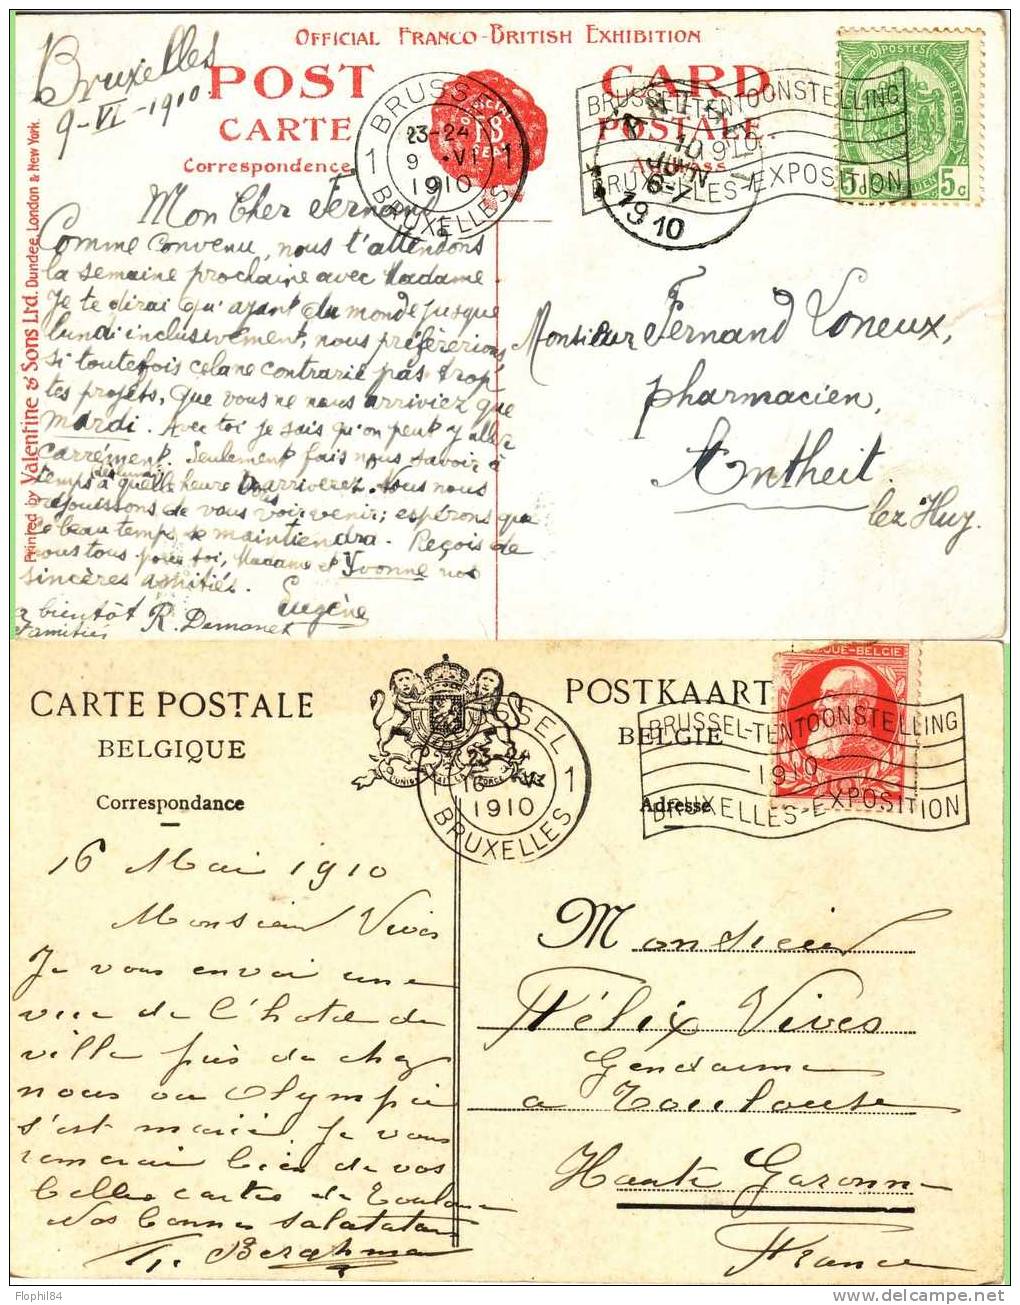 Official Franco-British Exhibition
POST CARD
CARTE POSTALE.
Correspondence
Address
Printed by Valentine & Sons Ltd. Dundee, London & New York.
Bruxelles
9-VI-1910.
BRUSSEL
23-24
9 VI
1910
1 1
BRUXELLES
BRUSSEL-TENTOONSTELLING
1910
BRUXELLES-EXPOSITION
POSTES
5c 5c
10
JUIN
6-7
1910
Mon Cher Fernand
Comme convenu, nous t'attendons
la semaine prochaine avec Madame.
Je te dirai qu'ayant du monde jusque
lundi inclusivement, nous préférerions
si toutefois cela ne contrarie pas trop
tes projets, que vous ne nous arriviez que
mardi. Avec toi je sais qu'on peut y aller
carrément. Seulement fais nous savoir à
temps à quelle heure vous arriverez. Nous nous
réjouissons de vous voir venir; espérons que
ce beau temps se maintiendra. Reçois de
nous tous pour toi, Madame et Yvonne nos
sincères amitiés. Eugène
a bientôt R. Demanet
Amitiés
Monsieur Fernand Loneux,
pharmacien,
Antheit
lez Huy.
CARTE POSTALE
BELGIQUE
Correspondance
POSTKAART
BELGIE
Adresse
L'UNION FAIT LA FORCE
BRUSSEL
23-24
16 V
1910
1 1
BRUXELLES
BRUSSEL-TENTOONSTELLING
1910
BRUXELLES-EXPOSITION
QUE-BELGIE
16 Mai 1910
Monsieur Vives
Je vous envoi une
vue de l'hotel de
ville près de chez
nous ou Olympie
s'est marié. Je vous
remercie bien de vos
belles cartes de Toulouse
Nos bonnes salutations
Monsieur
Félix Vives
Gendarme
a Toulouse
Haute Garonne
France
Flophil84
delcampe.net